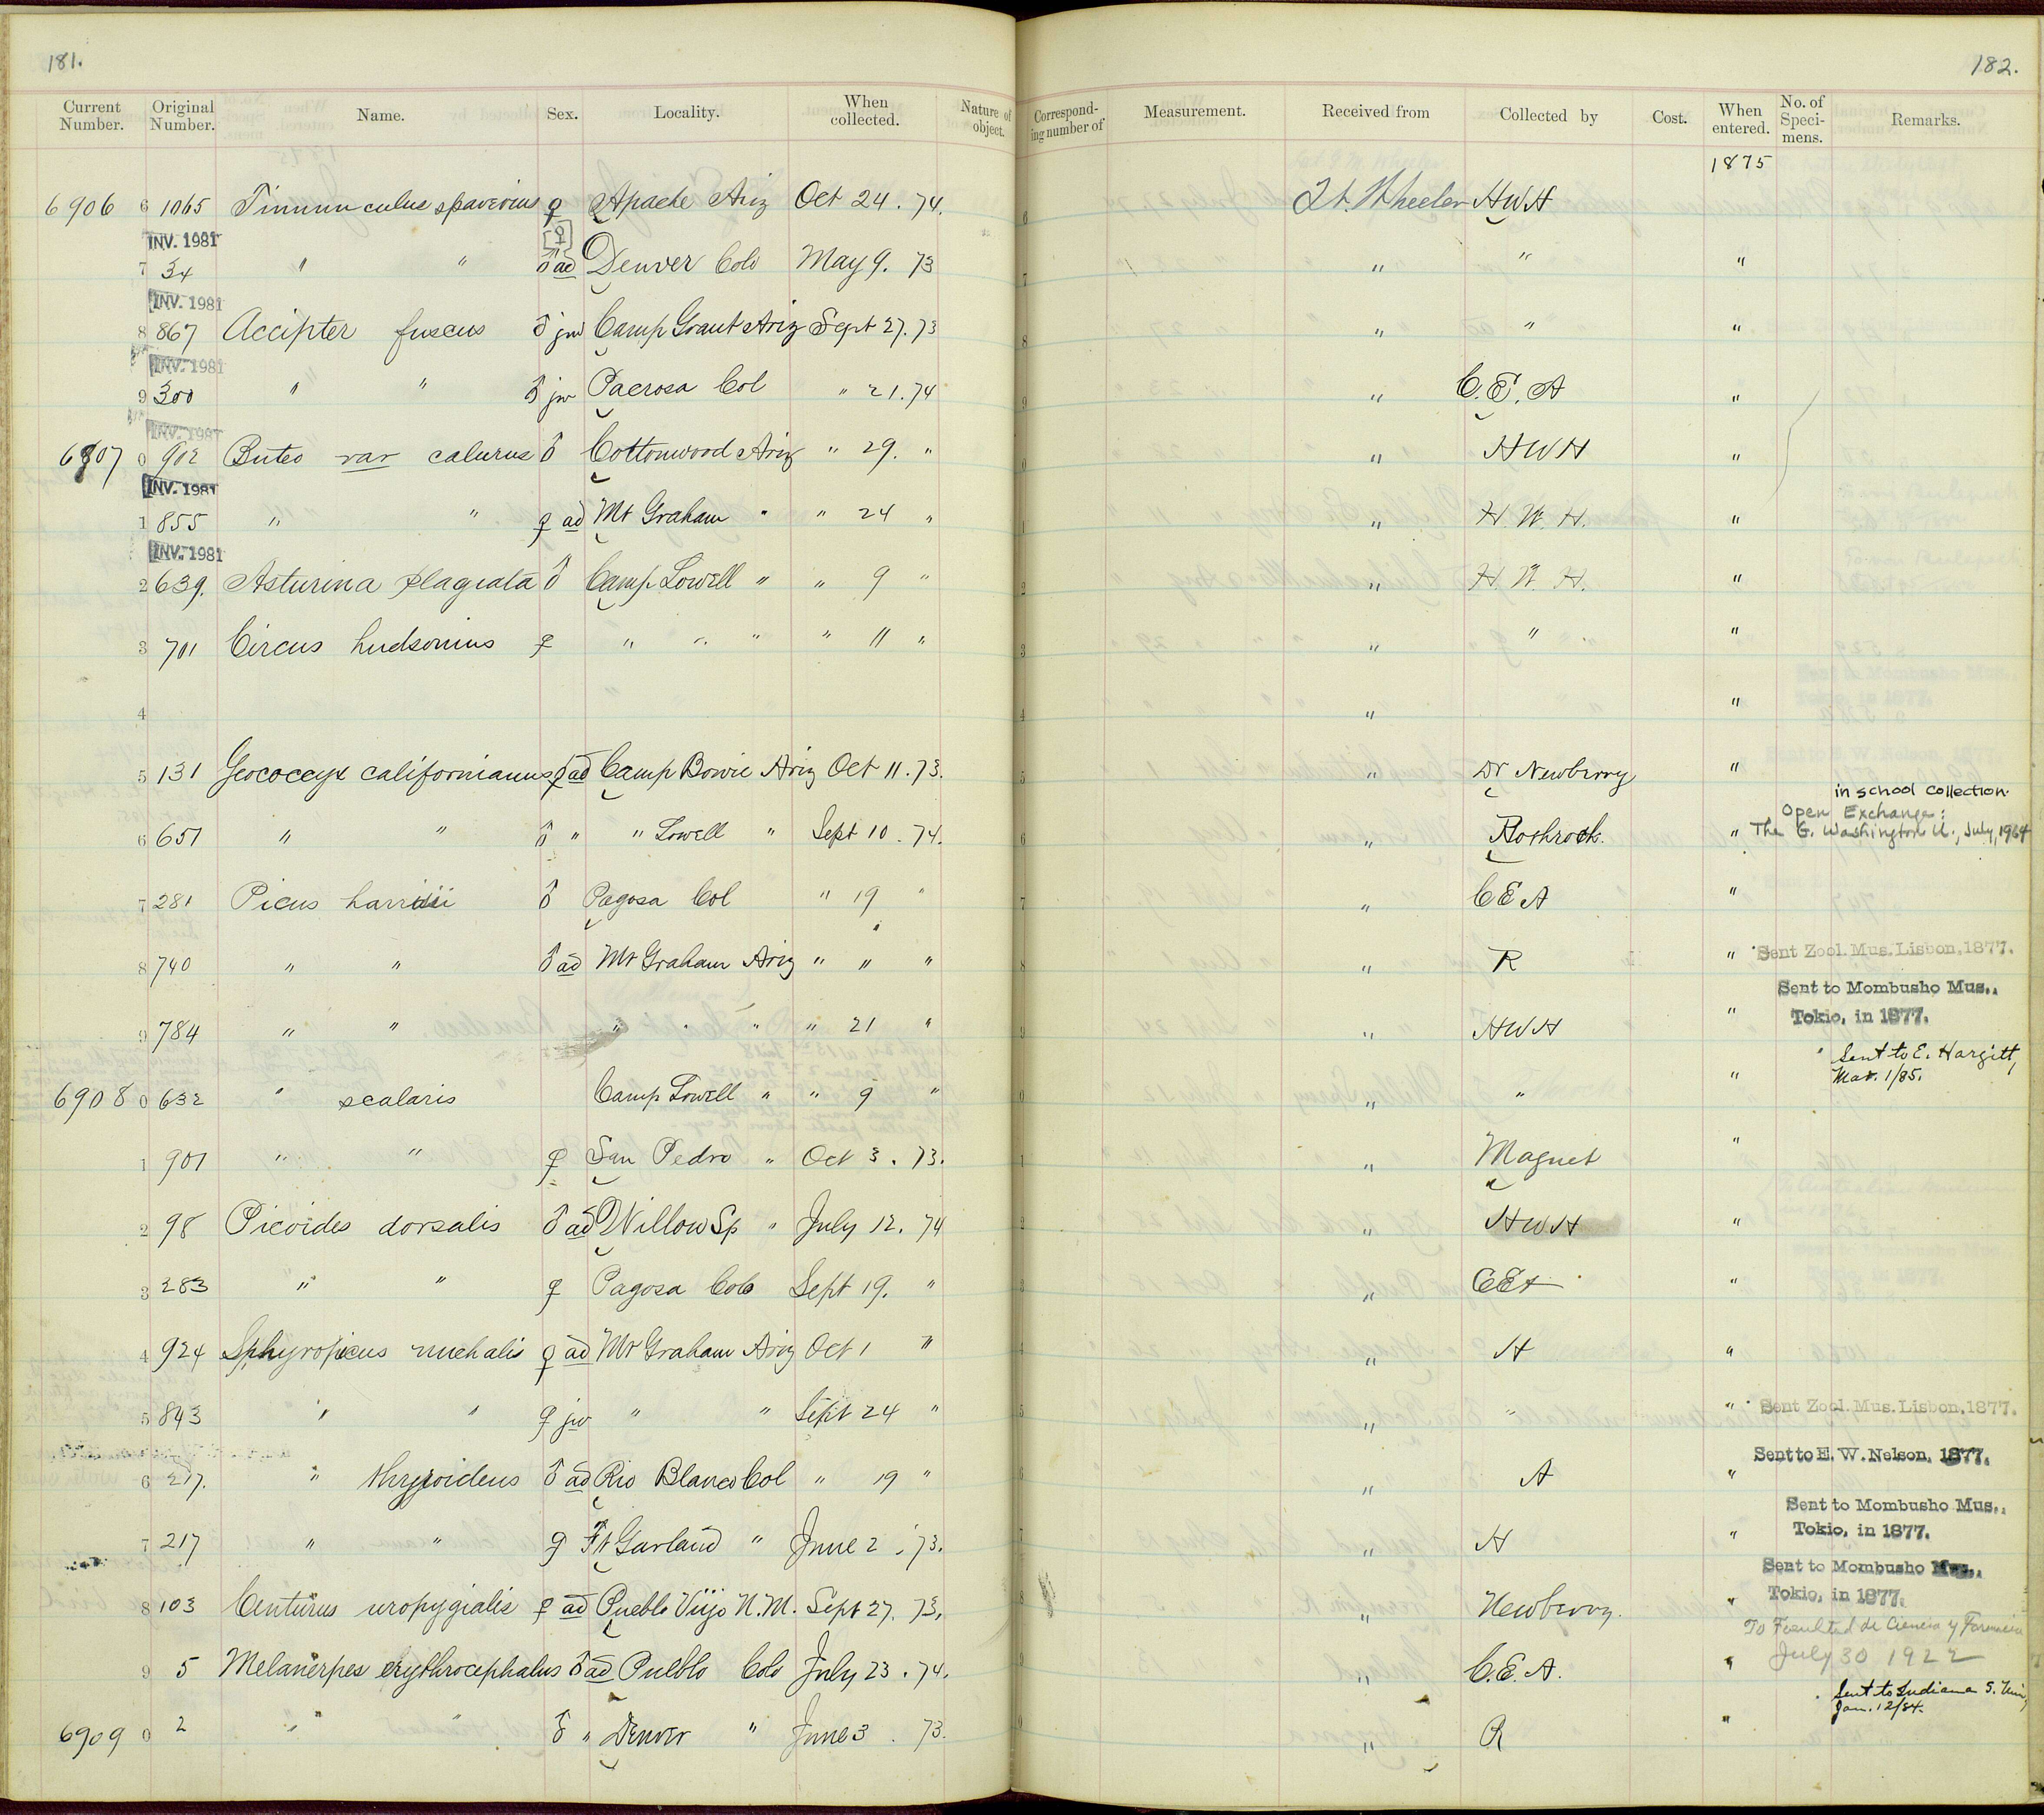 181.
182.
Current Number. Original Number. Name. Sex. Locality. When collected. Nature of object. Corresponding number of Measurement. Received from Collected by Cost. When entered. No. of Specimens. Remarks.
1875
6906 6 1065 Tinnunculus sparverius ♀ Apache Ariz Oct 24. 74. Lt. Wheeler HWH
INV. 1981 [♀]
7 34 " " ♂ ad Denver Colo May 9. 73 " " "
INV. 1981
8 867 Accipter fuscus ♂ juv Camp Grant Ariz Sept 27. 73 " " "
INV. 1981
9 300 " " ♂ juv Pacrosa Col " 21. 74 " C. E. A "
INV. 1981
6907 0 902 Buteo var calurus ♂ Cottonwood Ariz " 29. " " HWH "
INV. 1981
1 855 " " ♀ ad Mt Graham " " 24 " " H. W. H. "
INV. 1981
2 639. Asturina plagiata ♂ Camp Lowell " " 9 " " H. W. H. "
3 701 Circus hudsonius ♀ " " " " 11 " " " "
4 " "
5 131 Geococcyx californianus ♀ ad Camp Bowie Ariz Oct 11. 73. " Dr Newberry "
in school collection.
Open Exchange:
6 651 " " ♂ " " Lowell " Sept 10. 74. " Rothrock. " The G. Washington U., July, 1964
7 281 Picus harrisii ♂ Pagosa Col " 19 " " CEA "
8 740 " " ♂ ad Mt Graham Ariz " " " " R " Sent Zool. Mus. Lisbon, 1877.
Sent to Mombusho Mus.,
9 784 " " " " " " 21 " " HWH " Tokio, in 1877.
Sent to E. Hargitt,
6908 0 632 " scalaris Camp Lowell " " 9 " " " " Mar. 1/85.
1 901 " " ♀ San Pedro " Oct 3. 73. " Magnet "
2 98 Picoides dorsalis ♂ ad Willow Sp " July 12. 74 " HWH "
3 283 " " ♀ Pagosa Colo Sept 19. " " CEA "
4 924 Sphyropicus nuchalis ♀ ad Mt Graham Ariz Oct 1 " " H "
5 843 " " ♀ juv " " Sept 24 " " " " Sent Zool. Mus. Lisbon, 1877.
Sent to E. W. Nelson, 1877.
6 217. " thryoideus ♂ ad Rio Blanco Col " 19 " " A "
Sent to Mombusho Mus.,
7 217 " " ♀ Ft Garland " June 2. 73. " H " Tokio, in 1877.
Sent to Mombusho Mus.,
8 103 Centurus uropygialis ♀ ad Pueblo Viijo N. M. Sept 27. 73. " Newberry. " Tokio, in 1877.
To Facultad de Ciencia y Farmacia
9 5 Melanerpes erythrocephalus ♂ ad Pueblo Colo July 23. 74. " C. E. A. " July 30 1922
Sent to Indiana S. Uni,
Jan. 12/84.
6909 0 2 " " ♂ " Denver " June 3. 73. " R "